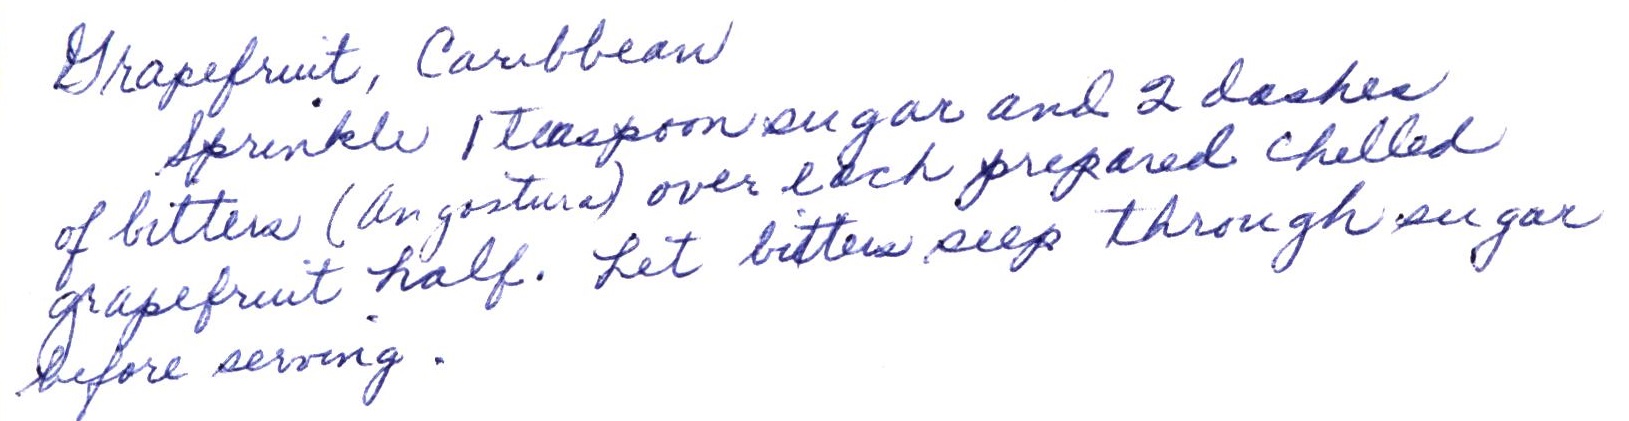 Grapefruit, Caribbean
Sprinkle 1 teaspoon sugar and 2 dashes
of bitters (Angostura) over each prepared chilled
grapefruit half. Let bitters seep through sugar
before serving.